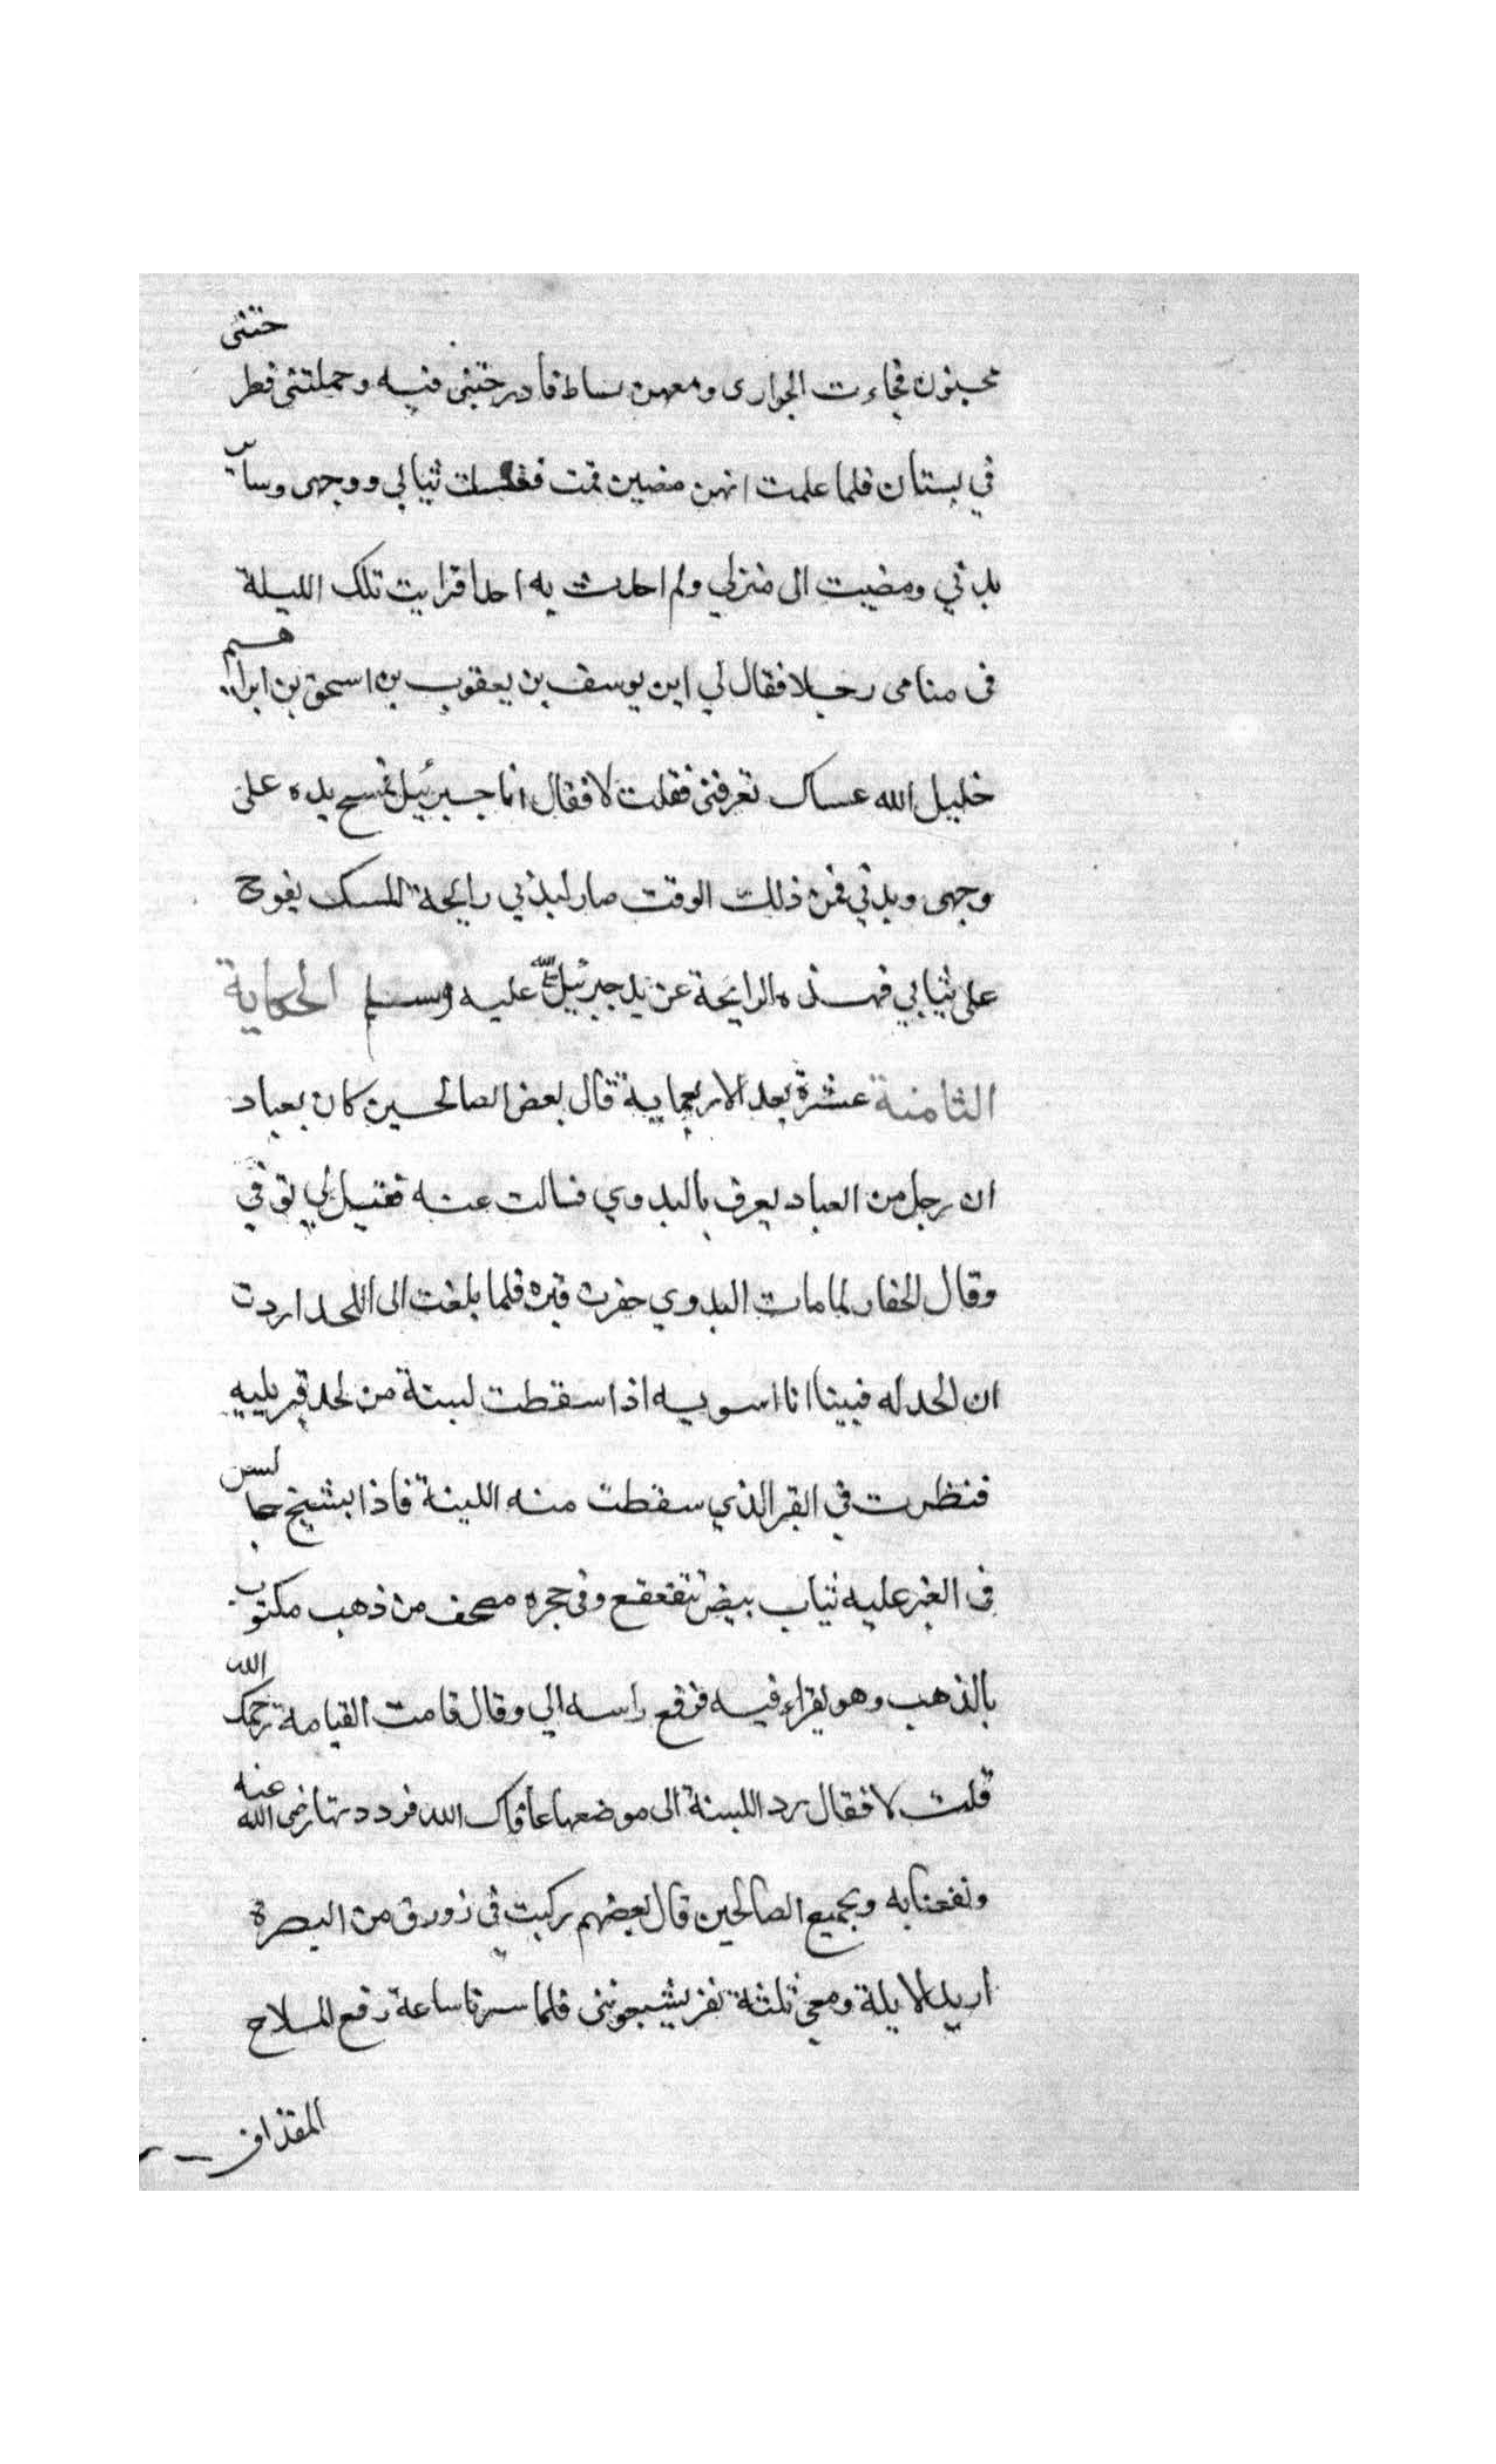 مجنون فجاءت الجواري ومعهن بساط فادرجتني فيه وحملتني فطرحتني
في بستان فلما علمت انهن مضين قمت فغسلت ثيابي ووجهي وساير
بدني ومضيت الى منزلي ولم احدث به احدا فرايت تلك الليلة
في منامي رجلا فقال لي اين يوسف بن يعقوب بن اسحق بن ابراهيم
خليل الله عساك تعرفني فقلت لا فقال انا جبرئيل فمسح يده على
وجهي وبدني فمن ذلك الوقت صار لبدني رايحة المسك يفوح
على ثيابي فهذه الرايحة عن يد جبرئيل صلى الله عليه وسلم الحكاية
الثامنة عشرة بعد الاربعماية قال بعض الصالحين كان بعباد
ان رجل من العباد يعرف بالبدوي فسالت عنه فقيل لي توفي
وقال الحفار لما مات البدوي حفرت قبره فلما بلغت الى اللحد اردت
ان الحد له فبينا انا اسويه اذا سقطت لبنة من لحد قبر يليه
فنظرت في القبر الذي سقطت منه اللبنة فاذا بشيخ جالس
في القبر عليه ثياب بيض تتقعقع وفي حجره مصحف من ذهب مكتوب
بالذهب وهو يقراء فيه فرفع راسه الي وقال قامت القيامة رحمك الله
قلت لا فقال رد اللبنة الى موضعها عافاك الله فرددتها رضي الله عنه
ونفعنا به وبجميع الصالحين قال بعضهم ركبت في زورق من البصرة
اريد الايلة ومعي ثلثة نفر يشيعونني فلما سرنا ساعة رفع الملاح
المقذاف